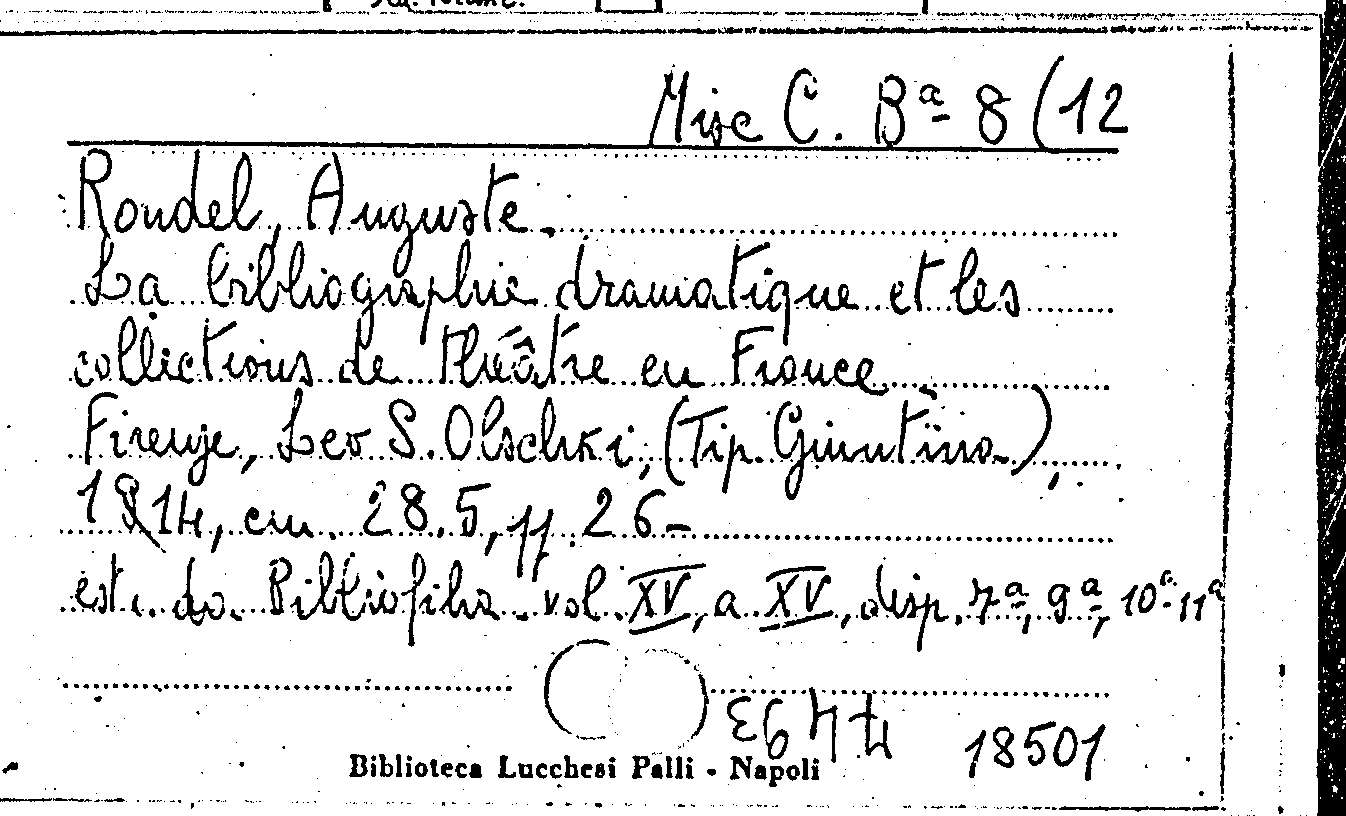 Misc C. Bª 8 (12
Rondel, Auguste.
La bibliographie dramatique et les
collections de théâtre en France.
Firenze, Leo S. Olschki, (Tip. Giuntina),
1914, cm. 28.5, pp. 26-
est. da Bibliofilia vol. XV, a XV, disp. 7ª, 9ª, 10ª 11ª
18501
Biblioteca Lucchesi Palli - Napoli